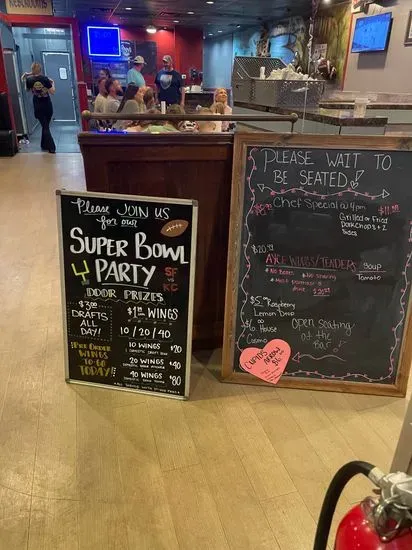 RESTROOMS
Please JOIN US
for our
SUPER BOWL
PARTY
SF
VS
KC
DOOR PRIZES
$3.00
DRAFTS
ALL
DAY!
PRE ORDER
WINGS
TO-GO
TODAY!
$1.00 WINGS
10 / 20 / 40
10 WINGS
$20
20 WINGS
$40
40 WINGS
$80
PLEASE WAIT TO
BE SEATED!
Chef Special @ 4pm
$11.99
Grilled or Fried
Porkchop & 2
Sides
$20.99
AYCE WINGS/TENDERS
* No Boxes * No Sharing
* Must purchase a
drink
Soup
Tomato
$5.00 Raspberry
Lemon Drop
House
Cosmo
Open seating
at the
Bar
CUPIDS
ARROW